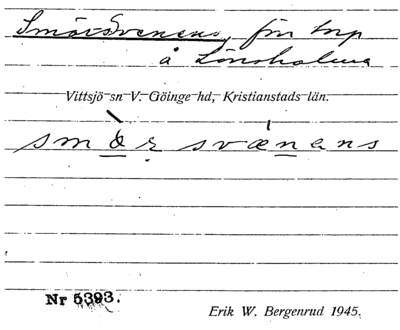 Smörsvenens, förr torp
å Lönsholma
Vittsjö sn V. Göinge hd, Kristianstads län.
smör svænans
Nr 5393.
Erik W. Bergenrud 1945.